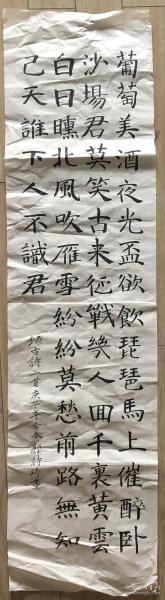 葡萄美酒夜光盃欲飲琵琶馬上催醉卧
沙場君莫笑古来征戰幾人回千裏黄雲
白日曛北風吹雁雪紛紛莫愁前路無知
己天誰下人不識君
錄古詩二首